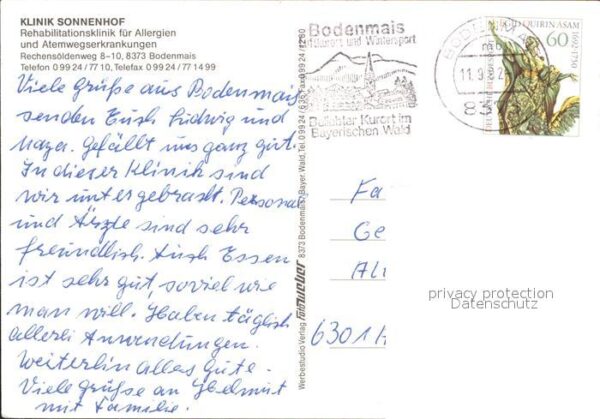 KLINIK SONNENHOF
Rehabilitationsklinik für Allergien
und Atemwegserkrankungen
Rechensöldenweg 8–10, 8373 Bodenmais
Telefon 0 99 24 / 77 10, Telefax 0 99 24 / 77 14 99
Viele Grüße aus Bodenmais
senden Euch Ludwig und
gefällt uns ganz gut.
In dieser Klinik sind
wir untergebracht. Personal
und Ärzte sind sehr
freundlich. Auch Essen
ist sehr gut, soviel wie
man will. Haben täglich
allerlei Anwendungen.
Weiterhin alles Gute.
Viele Grüße an Helmut
mit Familie.
Werbestudio Verlag foto Weber 8373 Bodenmais/Bayer. Wald, Tel. 0 99 24
Bodenmais
und Wintersport
Beliebter Kurort im
Bayerischen Wald
BODENMAIS
11.9.
QUIRIN ASAM
60
1692-1750
DEUTSCHE BUNDESPOST
Fa
Ge
Al
6301
privacy protection
Datenschutz